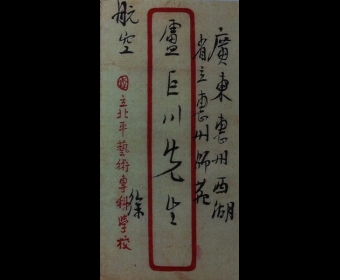 廣東惠州西湖
省立惠州師範
盧巨川先生
航空
國立北平藝術專科學校
徐